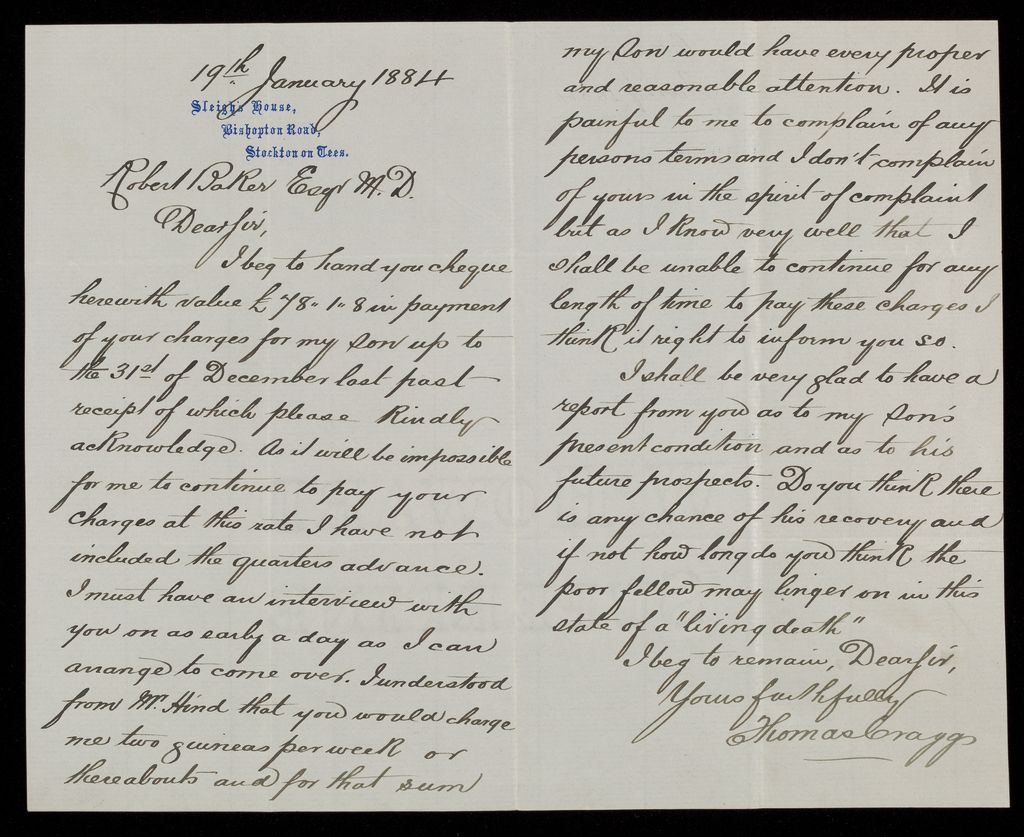 19th January 1884
Sleigh's House,
Bishopton Road,
Stockton on Tees.
Robert Baker Esqr M.D.
Dear Sir,
I beg to hand you cheque
herewith value £78" 1" 8 in payment
of your charges for my son up to
the 31st of December last past
receipt of which please kindly
acknowledge. As it will be impossible
for me to continue to pay your
charges at this rate I have not
included the quarters advance.
I must have an interview with
you on as early a day as I can
arrange to come over. I understood
from Mr. Hind that you would charge
me two guineas per week or
thereabouts and for that sum
my son would have every proper
and reasonable attention. It is
painful to me to complain of any
persons terms and I don't complain
of yours in the spirit of complaint
but as I know very well that I
shall be unable to continue for any
length of time to pay these charges I
think it right to inform you so.
I shall be very glad to have a
report from you as to my son's
present condition and as to his
future prospects. Do you think there
is any chance of his recovery and
if not how long do you think the
poor fellow may linger on in this
state of a "living death"
I beg to remain, Dear Sir,
Yours faithfully
Thomas Craggs